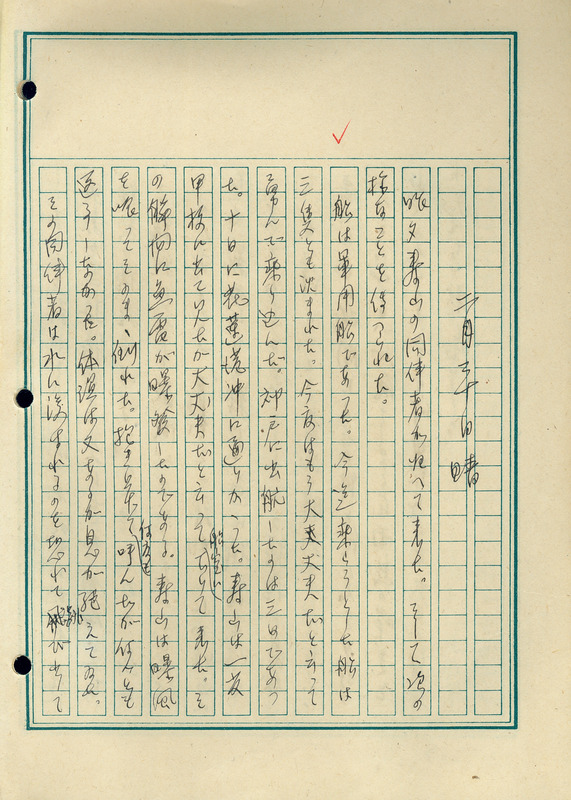 二月二十日 晴
昨夕壽山の同伴者が帰へて来た。そして次の
様なことを伝へられた。
船は軍用船であった。今迄乗らうとした船は
三隻とも沈まれた。今度はもう大丈夫だと云って
喜んで乗り込んだ。神戸に出航したのは三日であっ
た。十日に花蓮港沖に通りかゝった。壽山は一度
甲板に出ていたが大丈夫だと云って船室におりて来た。そ
の瞬間に魚雷が爆発したのである。壽山は爆風
を喰ってそのまゝ倒れた。抱き起して何度も呼んだが何とも
返事しなかった。体温は又あるが息が絶えてゐた。
その同伴者は水に浸まれるのを恐れて飛び出て